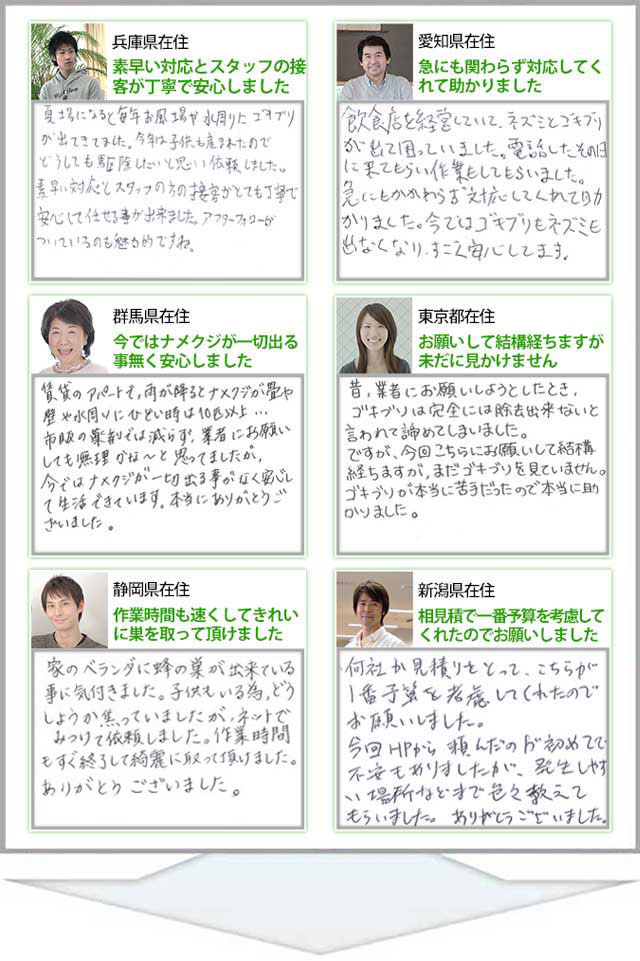 兵庫県在住
素早い対応とスタッフの接
客が丁寧で安心しました
夏場になると毎年お風呂場や水周りにゴキブリ
が出てきてました。今年は子供も産まれたので
どうしても駆除したいと思い依頼しました。
素早い対応とスタッフの方の接客がとても丁寧で
安心して任せる事が出来ました。アフターフォローが
ついているのも魅力的ですね。
愛知県在住
急にも関わらず対応してく
れて助かりました
飲食店を経営していて、ネズミとゴキブリ
が出て困っていました。電話したその日
に来てもらい作業もしてもらいました。
急にもかかわらず対応してくれて助
かりました。今ではゴキブリもネズミも
出なくなり、すごく安心してます。
群馬県在住
今ではナメクジが一切出る
事無く安心しました
賃貸のアパートで、雨が降るとナメクジが畳や
壁や水周りにひどい時は10匹以上…
市販の薬剤では減らず、業者にお願い
しても無理かな〜と思ってましたが、
今ではナメクジが一切出る事がなく安心し
て生活できています。本当にありがとうご
ざいました。
東京都在住
お願いして結構経ちますが
未だに見かけません
昔、業者にお願いしようとしたとき、
ゴキブリは完全には除去出来ないと
言われて諦めてしまいました。
ですが、今回こちらにお願いして結構
経ちますが、まだゴキブリを見ていません。
ゴキブリが本当に苦手だったので本当に助
かりました。
静岡県在住
作業時間も速くしてきれい
に巣を取って頂けました
家のベランダに蜂の巣が出来ている
事に気付きました。子供もいる為、どう
しようか焦っていましたが、ネットで
みつけて依頼しました。作業時間
もすぐ終了して綺麗に取って頂けました。
ありがとうございました。
新潟県在住
相見積で一番予算を考慮して
くれたのでお願いしました
何社か見積りをとって、こちらが
1番予算を考慮してくれたので
お願いしました。
今回HPから頼んだのが初めてで
不安もありましたが、発生しやす
い場所などまで色々教えて
もらいました。ありがとうございました。